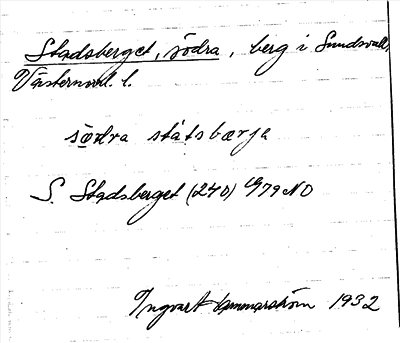 Stadsberget, södra, berg i Sundsvall,
Västernorrl. l.
södra statsbærja
S. Stadsberget (240) 79 NO
Ingvart Hammarström 1932